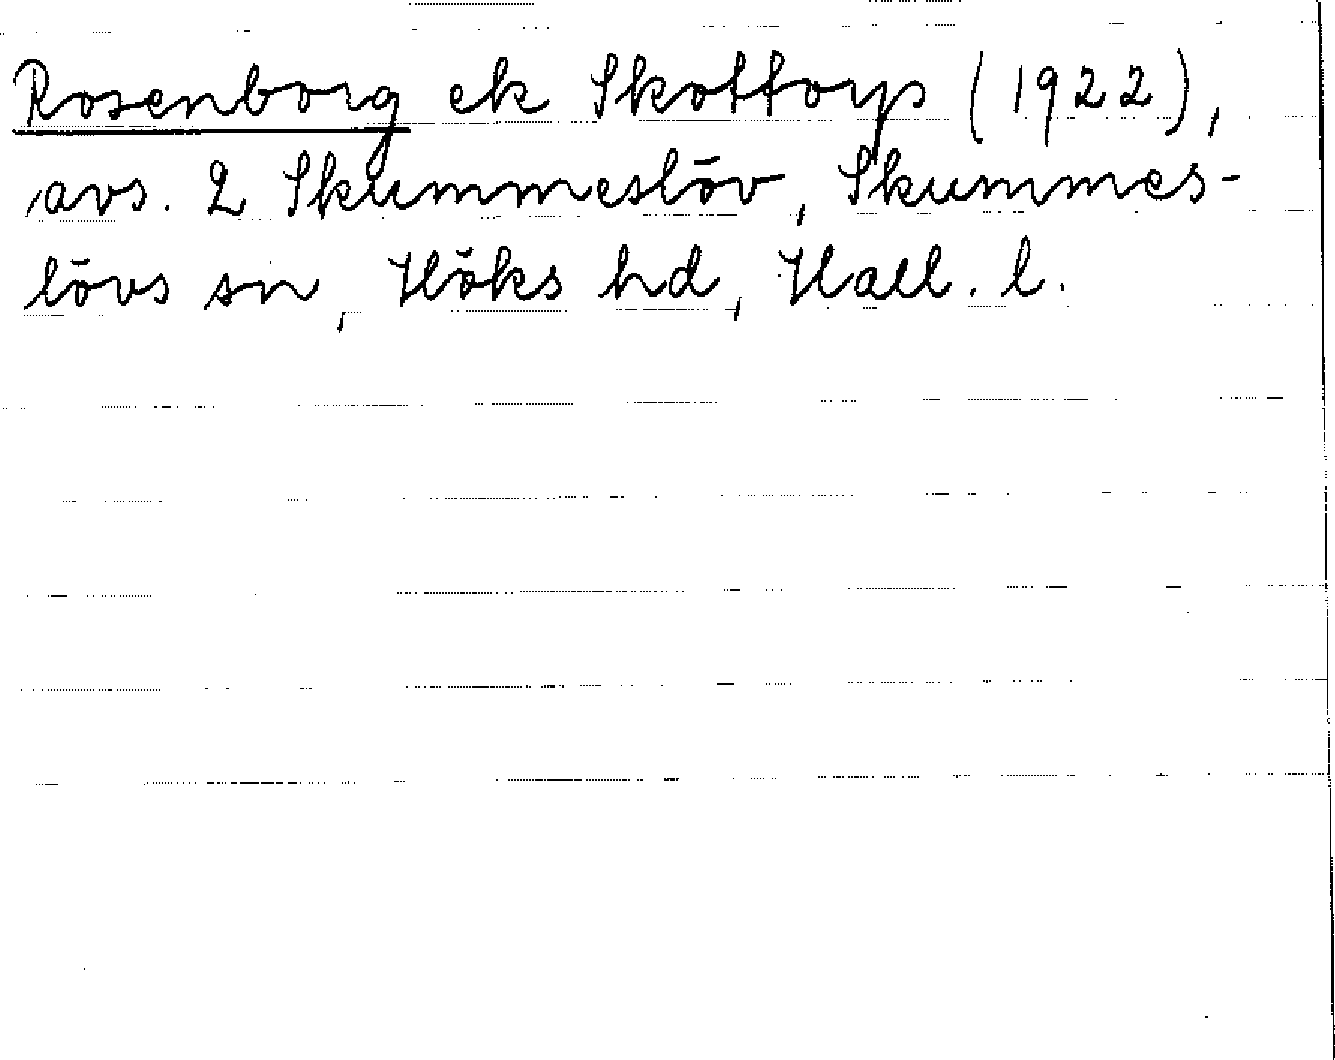 Rosenborg ek Skottorps (1922),
avs. 2 Skummeslöv, Skummes-
lövs sn, Höks hd, Hall. l.